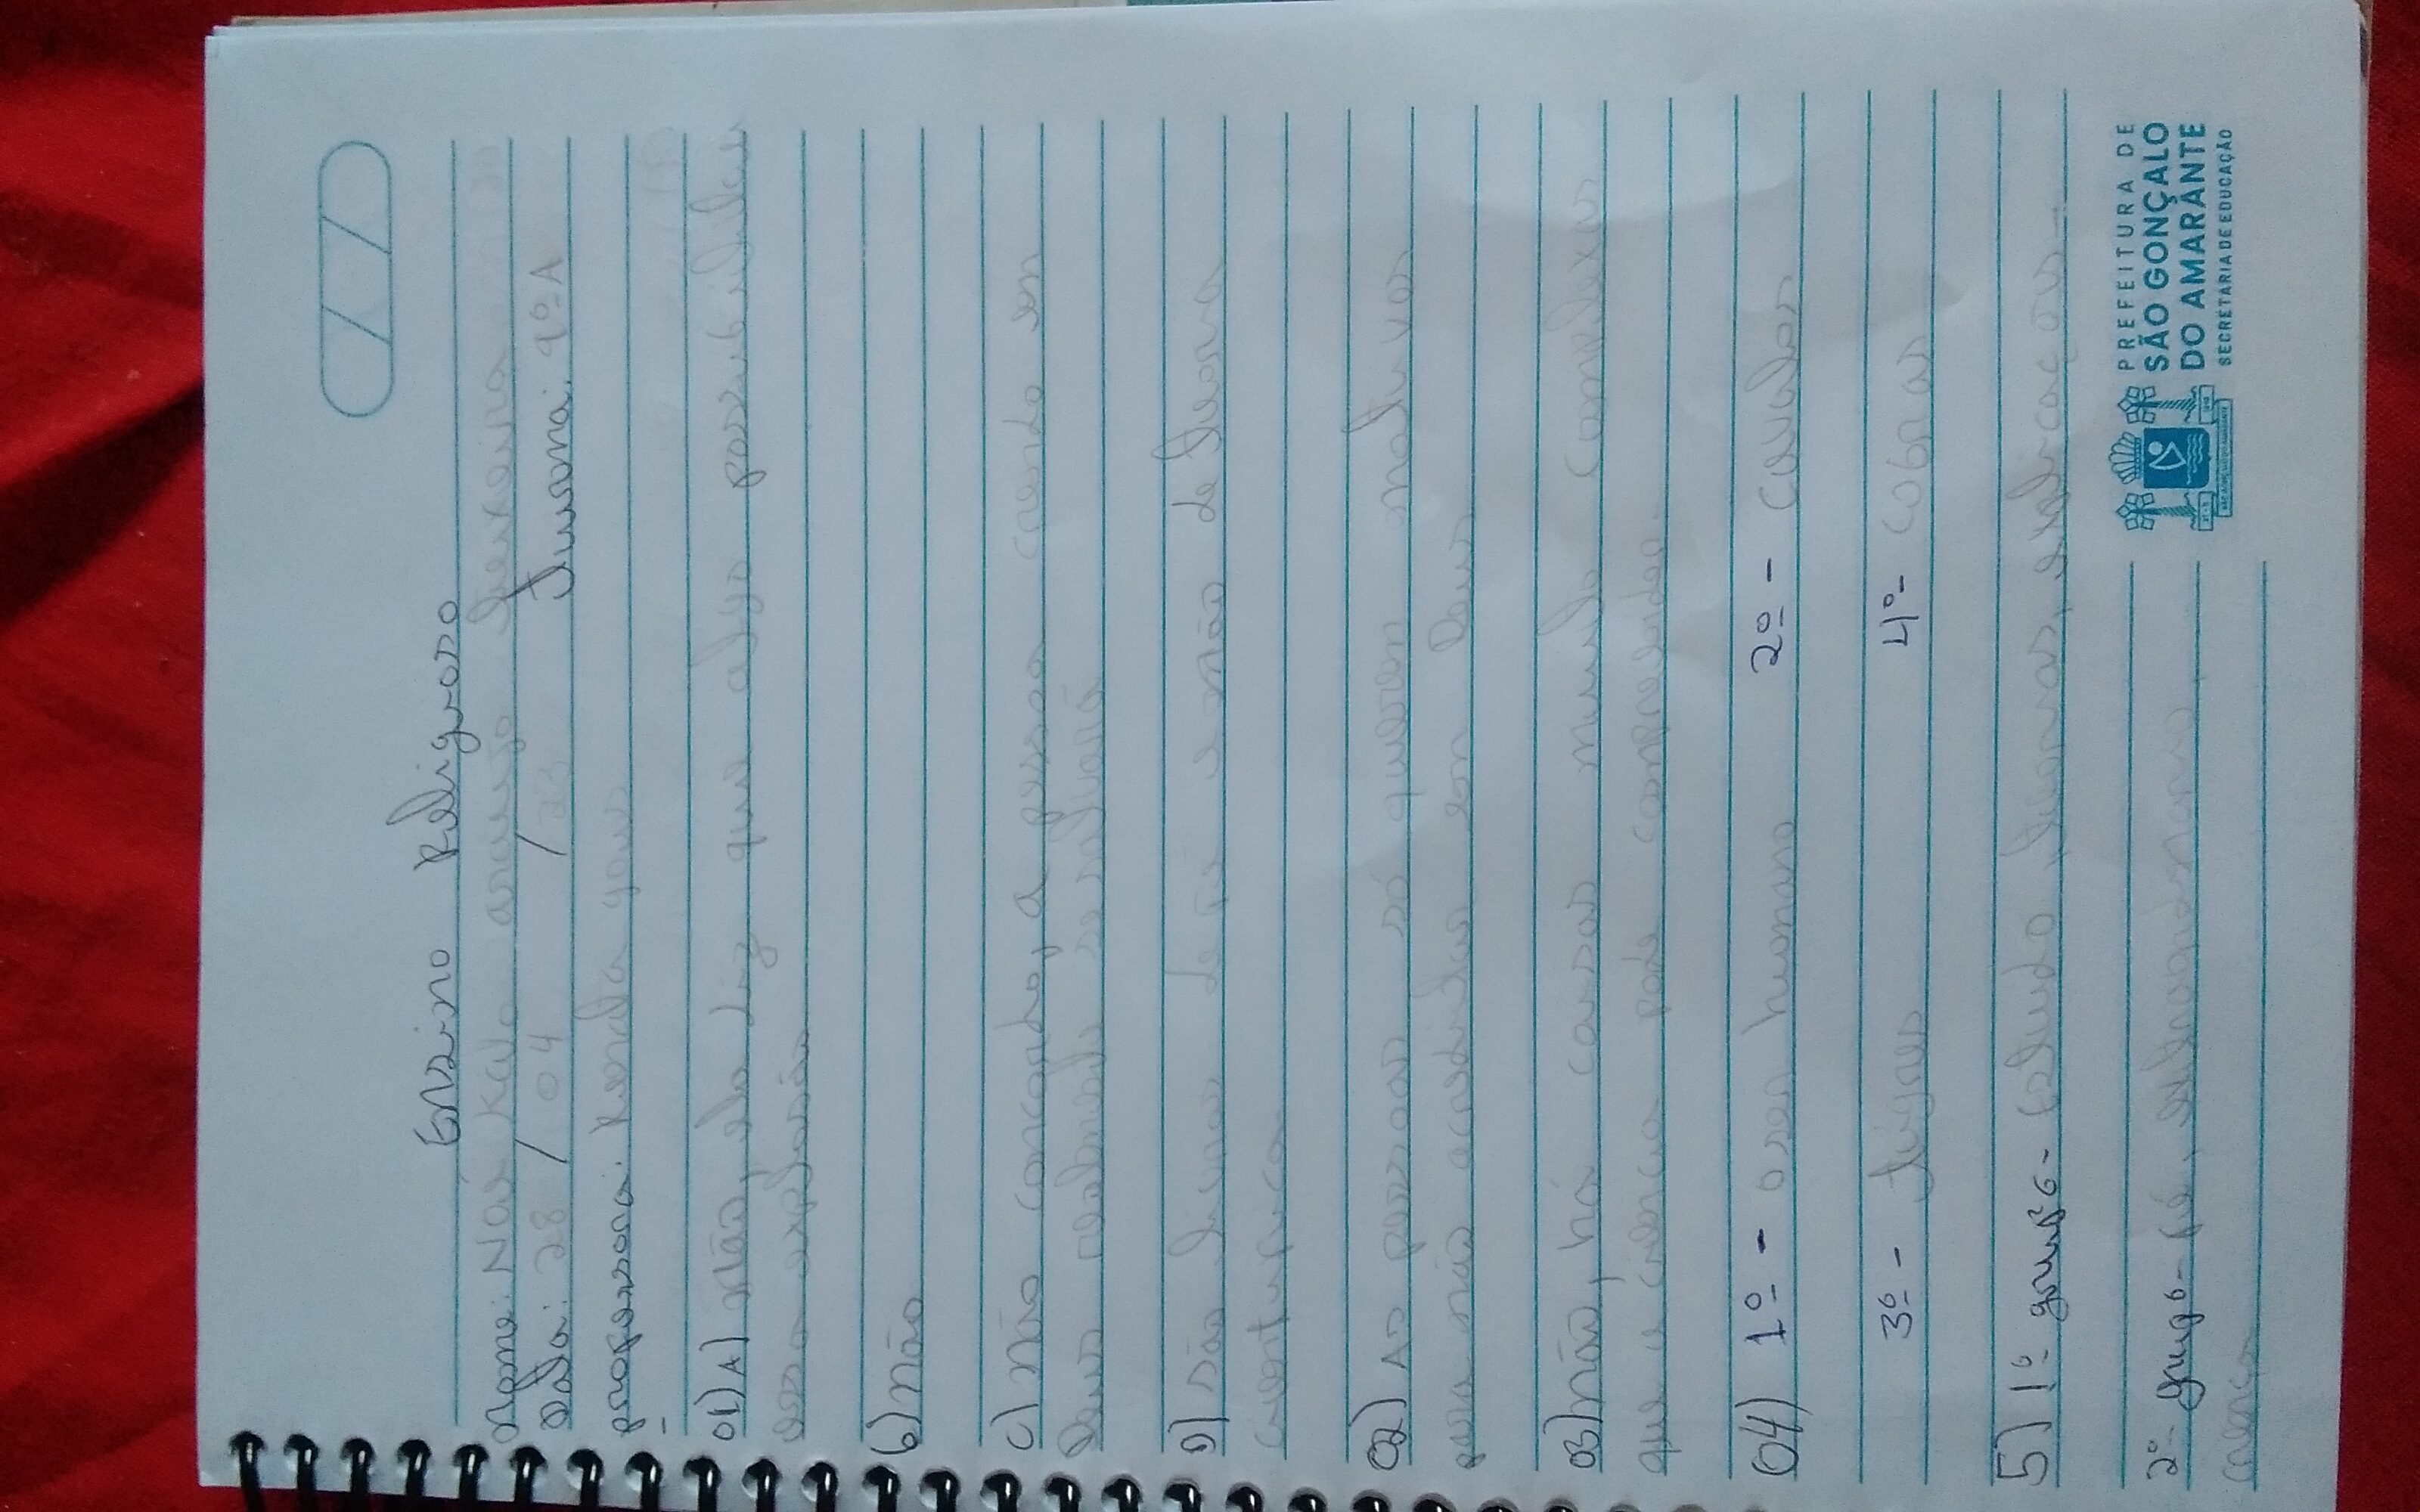 Ensino Religioso
Nome: Noé Kaio araujo teixeira
Data: 28 / 04 / 23 Turma: 9º A
professora: Renata
01) A) Não, ela diz que algo possibilitou
essa explosão
b) não
c) não concordo, a pessoa crendo em
Deus realmente se salvará
D) são livros de fé e não de teoria
cientifica
02) As pessoas só querem motivos
para não acreditar em Deus
03) não, há coisas muito complexas
que a ciencia pode compreender.
04) 1º - o ser humano 2º - cavalos
3º - tigres 4º - cobras
5) 1º grupo - Estudo, teorias, explicações.
2º grupo - fé,
crença
PREFEITURA DE
SÃO GONÇALO
DO AMARANTE
SECRETARIA DE EDUCAÇÃO